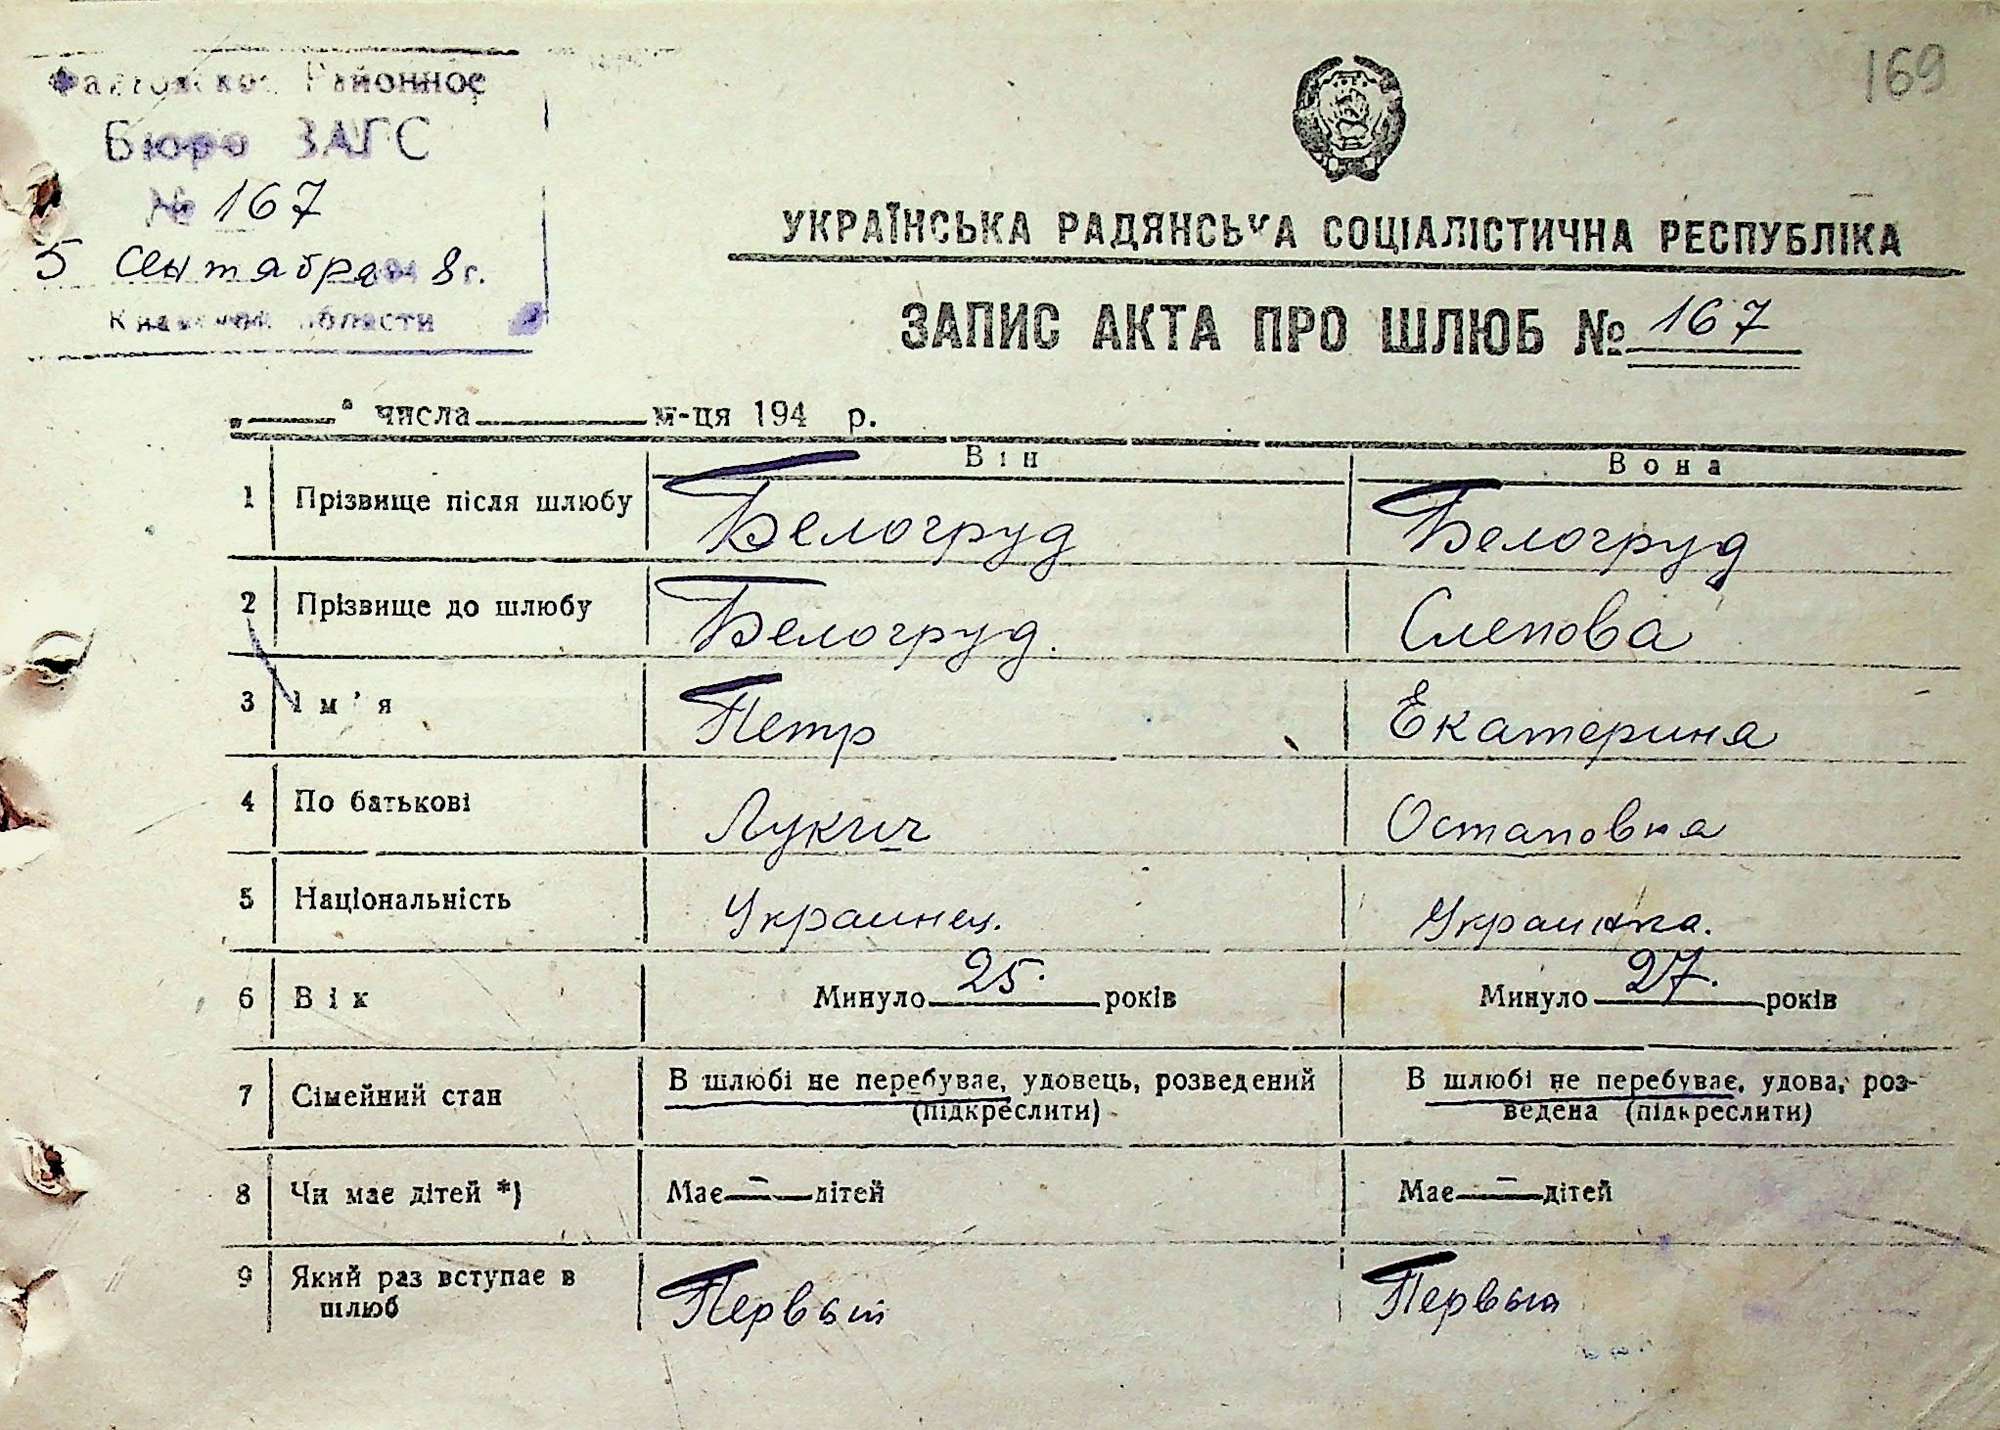 169
Районное
Бюро ЗАГС
№ 167
5 Сентября 1948 г.
области
УКРАЇНСЬКА РАДЯНСЬКА СОЦІАЛІСТИЧНА РЕСПУБЛІКА
ЗАПИС АКТА ПРО ШЛЮБ № 167
„ “ числа м-ця 194 р.
Він Вона
1 Прізвище після шлюбу Белогруд Белогруд
2 Прізвище до шлюбу Белогруд. Слепова
3 Ім’я Петр Екатерина
4 По батькові Лукич Остаповна
5 Національність Украинец. Украинка.
6 Вік Минуло 25. років Минуло 27. років
7 Сімейний стан В шлюбі не перебуває, удовець, розведений (підкреслити) В шлюбі не перебуває, удова, роз-
ведена (підкреслити)
8 Чи має дітей *) Має — дітей Має — дітей
9 Який раз вступає в шлюб Первый Первый